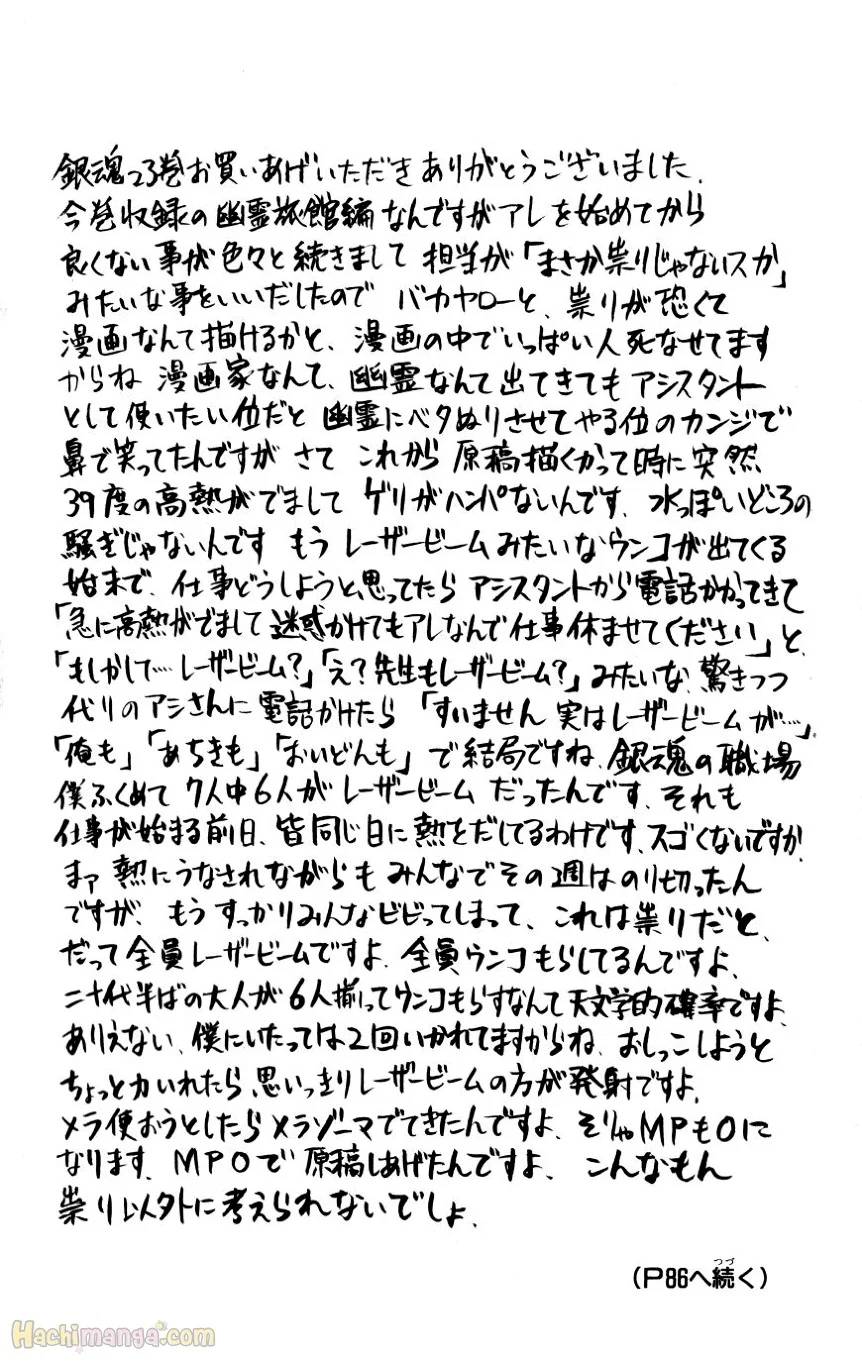 銀魂23巻お買いあげいただきありがとうございました.
今巻収録の幽霊旅館編なんですがアレを始めてから
良くない事が色々と続きまして 担当が「まさか祟りじゃないスか」
みたいな事をいいだしたので バカヤローと、祟りが恐くて
漫画なんて描けるかと、漫画の中でいっぱい人死なせてます
からね 漫画家なんて、幽霊なんて出てきてもアシスタント
として使いたい位だと 幽霊にベタぬりさせてやる位のカンジで
鼻で笑ってたんですが さて これから 原稿描くかって時に突然
39度の高熱がでまして ゲリがハンパないんです、水っぽいどころの
騒ぎじゃないんです もう レーザービームみたいなウンコが出てくる
始末で、仕事どうしようと思ってたら アシスタントから電話かかってきて
「急に高熱がでまして迷惑かけてもアレなんで仕事休ませてください」と、
「もしかして…レーザービーム?」「え?先生もレーザービーム?」みたいな、驚きつつ
代りのアシさんに電話かけたら 「すいません 実はレーザービームが…」
「俺も」「あちきも」「おいどんも」で結局ですね、銀魂の職場
僕ふくめて 7人中6人がレーザービームだったんです、それも
仕事が始まる前日、皆同じ日に熱をだしてるわけです、スゴくないですか、
まァ 熱にうなされながらも みんなでその週はのり切ったん
ですが、もうすっかりみんなビビってしまって、これは祟りだと、
だって全員レーザービームですよ、全員ウンコもらしてるんですよ、
二十代半ばの大人が6人揃ってウンコもらすなんて天文学的確率ですよ、
ありえない、僕にいたっては2回いかれてますからね、おしっこしようと
ちょっと力いれたら、思いっきりレーザービームの方が発射ですよ、
メラ使おうとしたらメラゾーマでてきたんですよ、そりゃMPも0に
なります、MP0で原稿しあげたんですよ、こんなもん
祟り以外に考えられないでしょ、
(P86へ続く)
つづ
Hachimanga.com